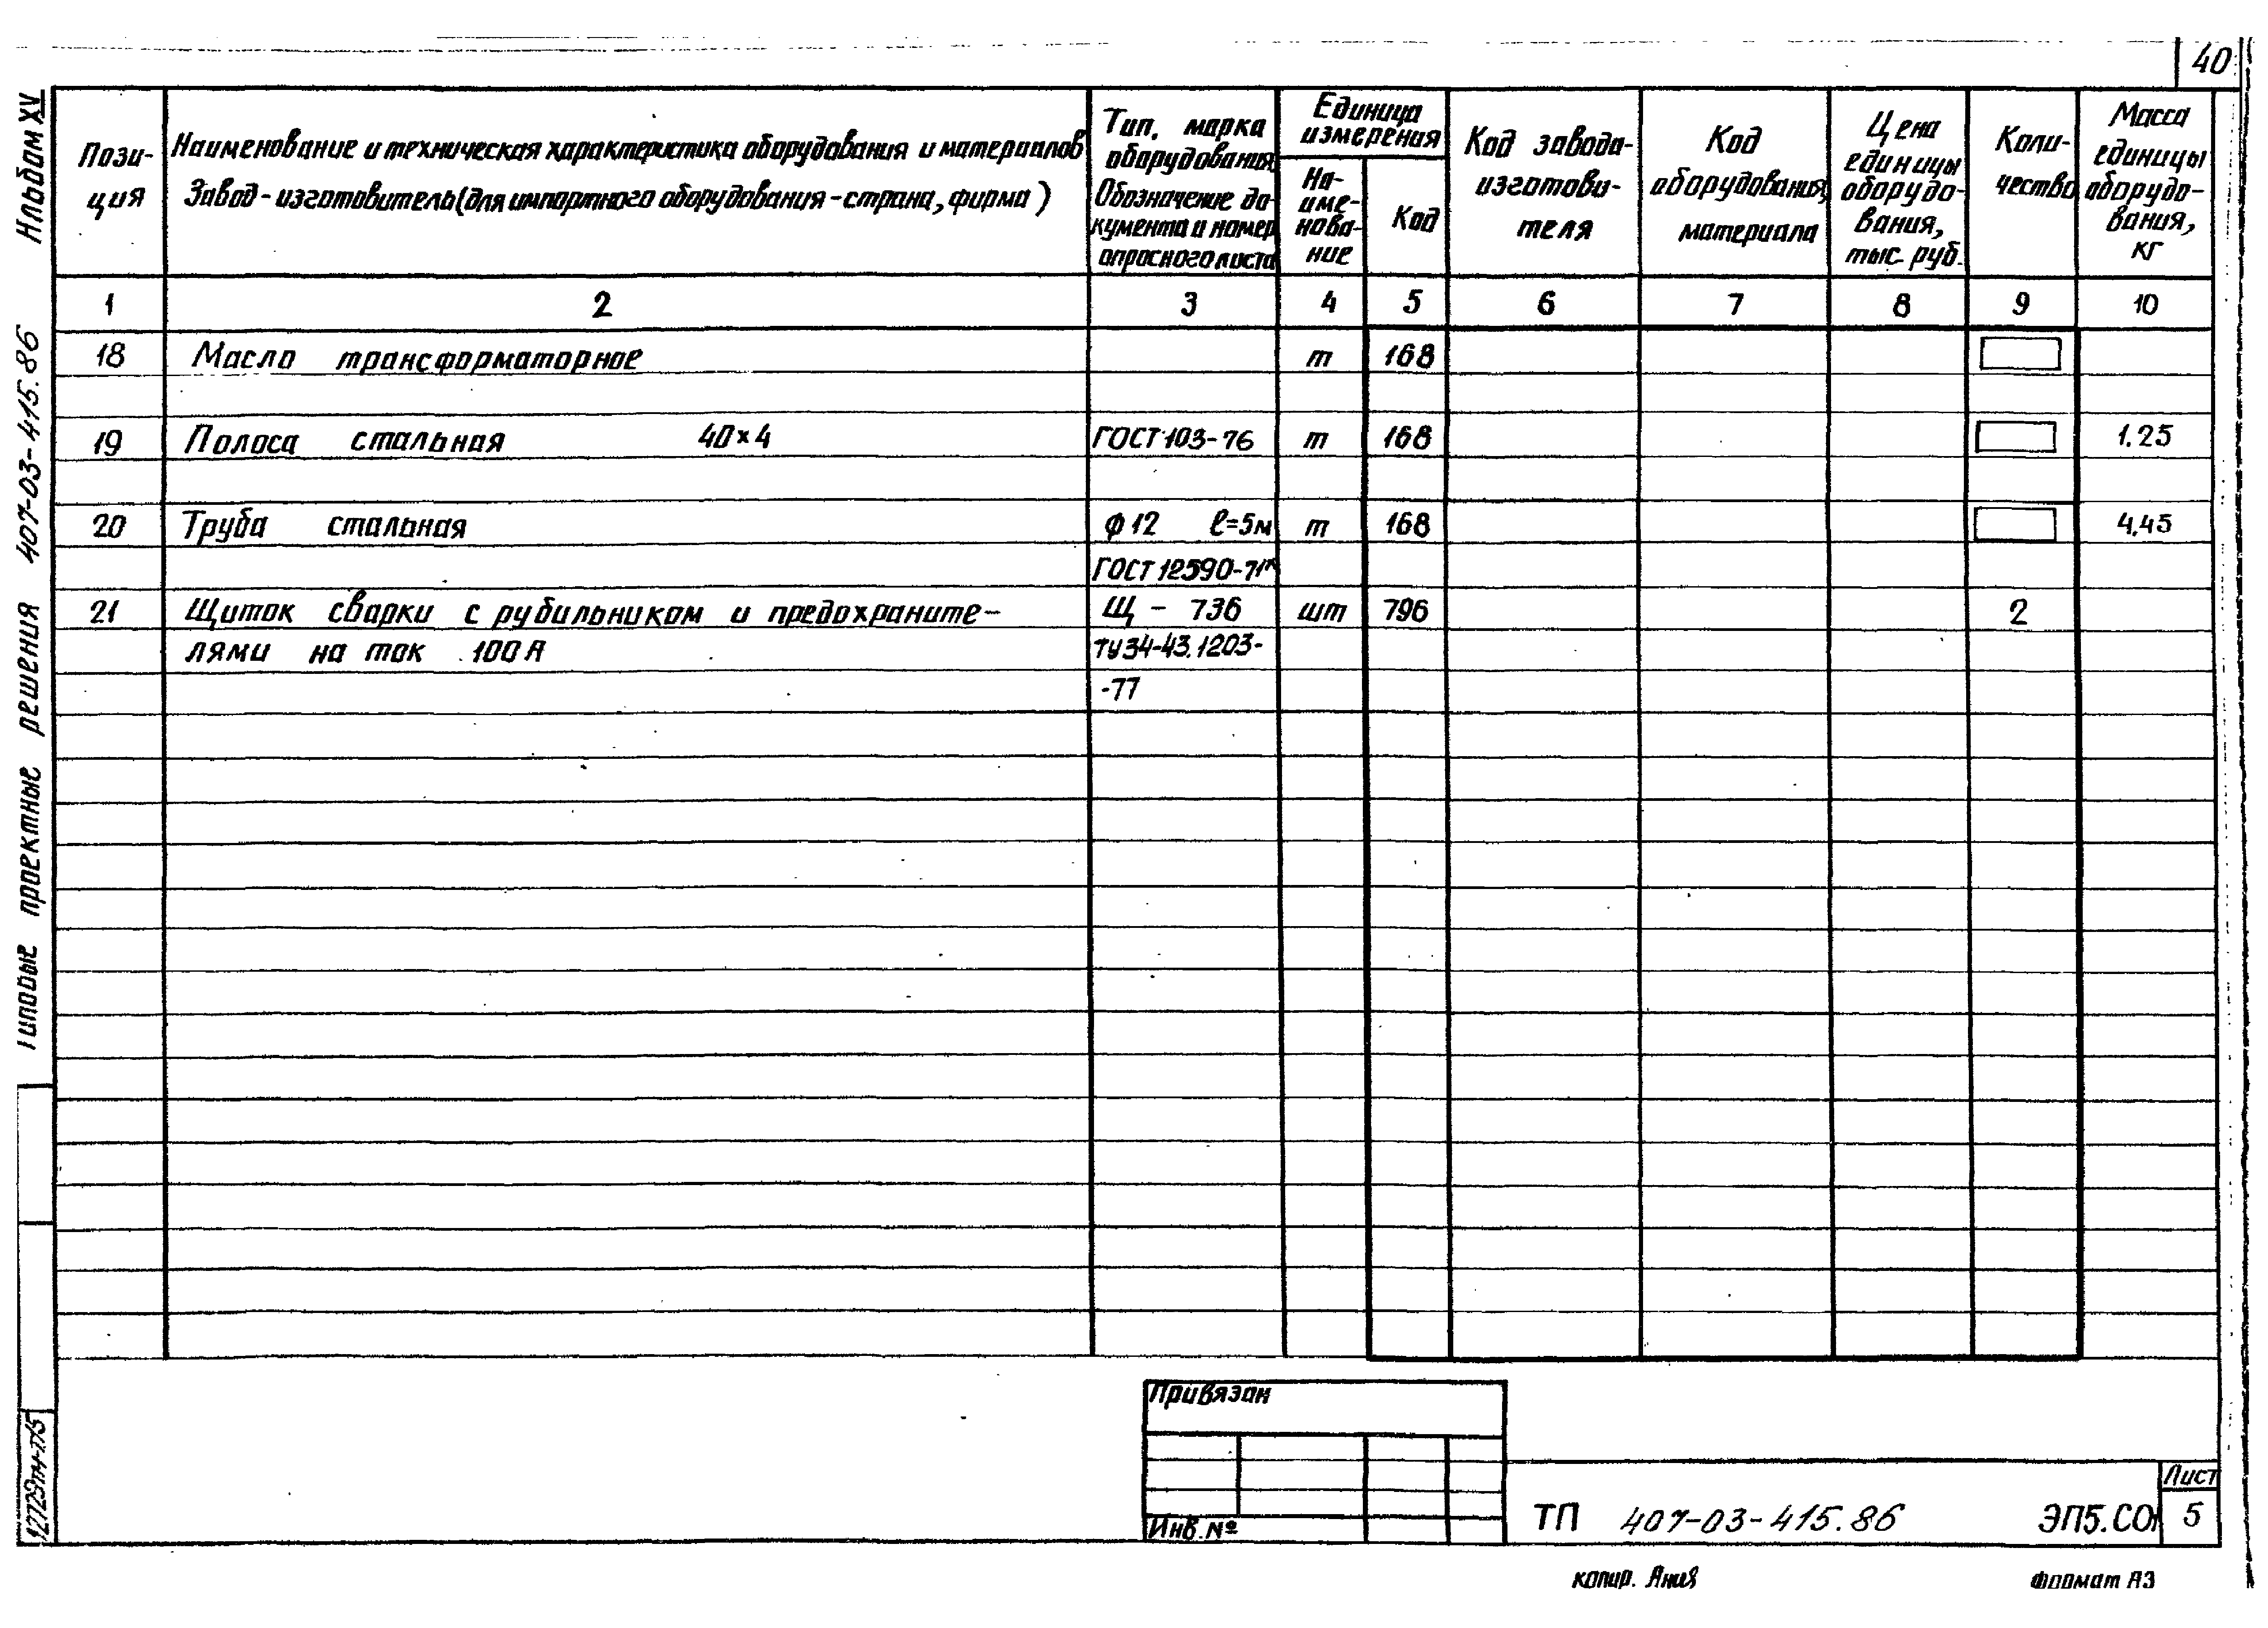 40
Альбом XV
Типовые проектные решения 407-03-415.86
Пози-
ция
Наименование и техническая характеристика оборудования и материалов
Завод-изготовитель (для импортного оборудования - страна, фирма)
Тип, марка
оборудования.
Обозначение до-
кумента и номер
опросного листа
Единица
измерения
На-
име-
нова-
ние
Код
Код завода-
изготови-
теля
Код
оборудования,
материала
Цена
единицы
оборудо-
вания,
тыс. руб.
Коли-
чество
Масса
единицы
оборудо-
вания,
кг
1 2 3 4 5 6 7 8 9 10
18 Масло трансформаторное т 168
19 Полоса стальная 40×4 ГОСТ 103-76 т 168 1.25
20 Труба стальная ф 12 ℓ=5м т 168 4,45
ГОСТ 12590-71*
21 Щиток сварки с рубильником и предохраните- Щ - 736 шт 796 2
лями на ток 100А ТУ34-43.1203-
-77
12729тм-т15
Привязан
Инв. №
ТП 407-03-415.86 ЭП5.СО
Лист
5
копир. Формат А3